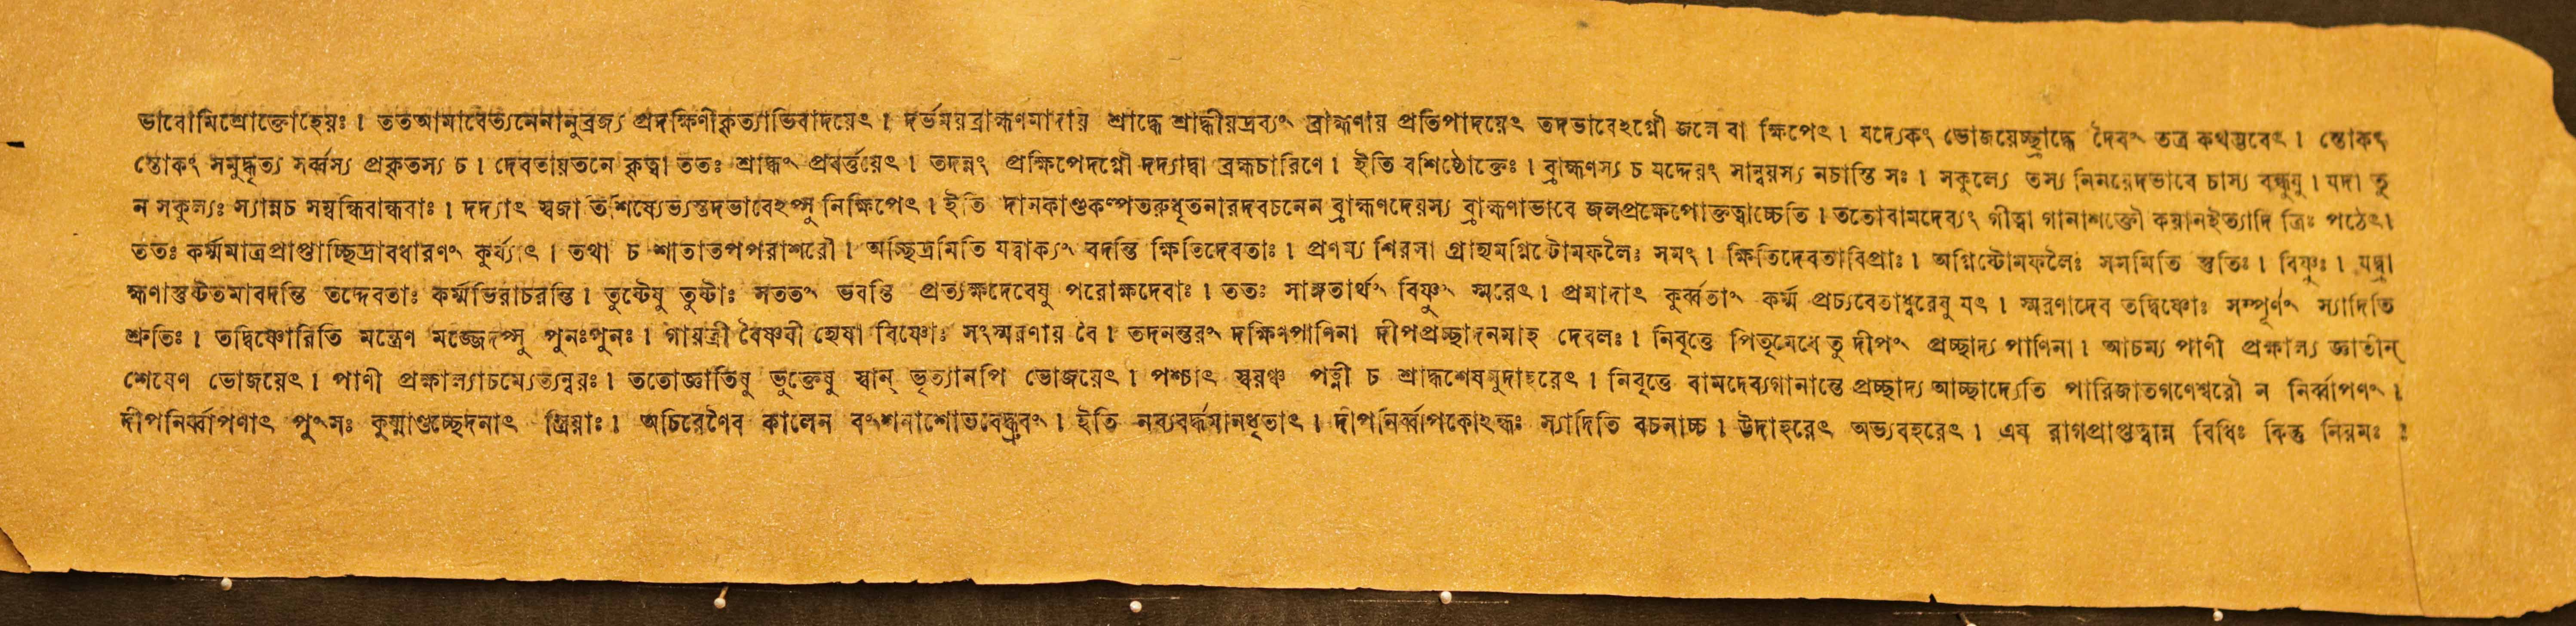 ভাবোমিশ্রোক্তোহেয়ঃ । ততআমাবেত্যনেনানুব্রজ্য প্রদক্ষিণীকৃত্যাভিবাদয়েৎ । দর্ভময়ব্রাহ্মণমাদায় শ্রাদ্ধে শ্রাদ্ধীয়দ্রব্যং ব্রাহ্মণায় প্রতিপাদয়েৎ তদভাবেঽগ্নৌ জলে বা ক্ষিপেৎ । যদ্যেকং ভোজয়েচ্ছ্রাদ্ধে দৈবং তত্র কথম্ভবেৎ । স্তোকং
স্তোকং সমুদ্ধৃত্য সর্ব্বস্য প্রকৃতস্য চ । দেবতায়তনে কৃত্বা ততঃ শ্রাদ্ধং প্রবর্ত্তয়েৎ । তদন্নং প্রক্ষিপেদগ্নৌ দদ্যাদ্বা ব্রহ্মচারিণে । ইতি বশিষ্ঠোক্তেঃ । ব্রাহ্মণস্য চ যদ্দেয়ং সান্বয়স্য নচাস্তি সঃ । সকুল্যে তস্য নিনয়েদভাবে চাস্য বন্ধুষু । যদা তু
ন সকুল্যঃ স্যান্নচ সম্বন্ধিবান্ধবাঃ । দদ্যাৎ স্বজাতিশিষ্যেভ্যস্তদভাবেঽপ্সু নিক্ষিপেৎ । ইতি দানকাণ্ডকল্পতরুধৃতনারদবচনেন ব্রাহ্মণদেয়স্য ব্রাহ্মণাভাবে জলপ্রক্ষেপোক্তত্বাচ্চেতি । ততোবামদেব্যং গীত্বা গানাশক্তৌ কয়ানইত্যাদি ত্রিঃ পঠেৎ।
ততঃ কর্ম্মমাত্রপ্রাপ্তাচ্ছিদ্রাবধারণং কুর্য্যাৎ । তথা চ শাতাতপপরাশরৌ । অচ্ছিদ্রমিতি যদ্বাক্যং বদন্তি ক্ষিতিদেবতাঃ । প্রণম্য শিরসা গ্রাহ্যমগ্নিষ্টোমফলৈঃ সমং । ক্ষিতিদেবতাবিপ্রাঃ । অগ্নিষ্টোমফলৈঃ সমমিতি স্তুতিঃ । বিষ্ণুঃ । যদ্ব্রা
হ্মণাস্তুষ্টতমাবদন্তি তদ্দেবতাঃ কর্ম্মভিরাচরন্তি । তুষ্টেষু তুষ্টাঃ সততং ভবন্তি প্রত্যক্ষদেবেষু পরোক্ষদেবাঃ । ততঃ সাঙ্গতার্থং বিষ্ণুং স্মরেৎ । প্রমাদাৎ কুর্ব্বতাং কর্ম্ম প্রচ্যবেতাধ্বরেষু যৎ । স্মরণাদেব তদ্বিষ্ণোঃ সম্পূর্ণং স্যাদিতি
শ্রুতিঃ । তদ্বিষ্ণোরিতি মন্ত্রেণ মজ্জেদপ্সু পুনঃপুনঃ । গায়ত্রী বৈষ্ণবী হ্যেষা বিষ্ণোঃ সংস্মরণায় বৈ । তদনন্তরং দক্ষিণপাণিনা দীপপ্রচ্ছাদনমাহ দেবলঃ । নিবৃত্তে পিতৃমেধে তু দীপং প্রচ্ছাদ্য পাণিনা। আচম্য পাণী প্রক্ষাল্য জ্ঞাতীন্
শেষেণ ভোজয়েৎ । পাণী প্রক্ষাল্যাচম্যেত্যন্বয়ঃ । ততোজ্ঞাতিষু ভুক্তেষু স্বান্ ভৃত্যানপি ভোজয়েৎ । পশ্চাৎ স্বয়ঞ্চ পত্নী চ শ্রাদ্ধশেষমুদাহরেৎ । নিবৃত্তে বামদেব্যগানান্তে প্রচ্ছাদ্য আচ্ছাদ্যেতি পারিজাতগণেশ্বরৌ ন নির্ব্বাপণং ।
দীপনির্ব্বাপণাৎ পুংসঃ কুষ্মাণ্ডচ্ছেদনাৎ স্ত্রিয়াঃ । অচিরেণৈব কালেন বংশনাশোভবেদ্ধ্রুবং । ইতি নব্যবর্দ্ধমানধৃতাৎ । দীপনির্ব্বাপকোঽন্ধঃ স্যাদিতি বচনাচ্চ । উদাহরেৎ অভ্যবহরেৎ । এষ রাগপ্রাপ্তত্বান্ন বিধিঃ কিন্তু নিয়মঃ ঃ